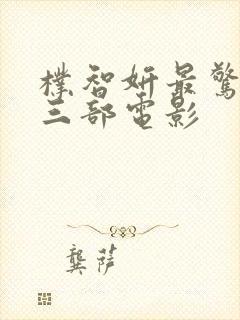 樸智妍最驚
三部電影
龔萍